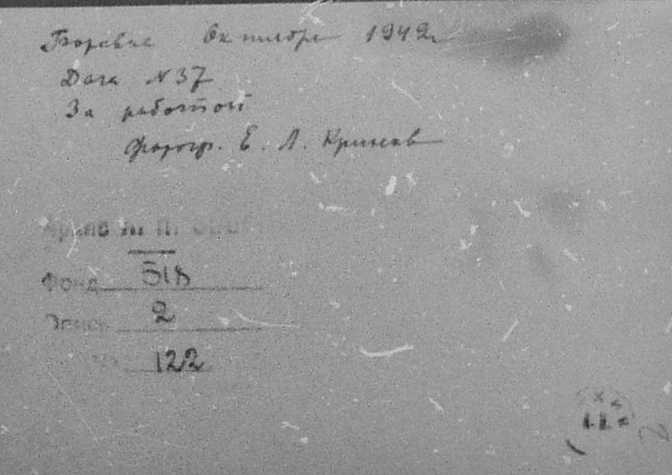 Боровое Октябрь 1942г
Дача №37
За работой
Фотогр. Е. Л. Кринов
Архив
Фонд 518
Опись 2
122